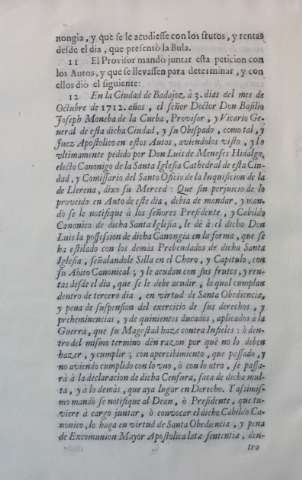 nongia, y que se le acudiesse con los frutos, y rentas
desde el dia, que presentò la Bula.
11 El Provisor mandò juntar esta peticion con
los Autos, y que se llevassen para determinar, y con
ellos diò el siguiente:
12 En la Ciudad de Badajoz, à 3. dias del mes de
Octubre de 1712. años, el señor Doctor Don Basilio
Joseph Moncha de la Cueba, Provisor, y Vicario Ge-
neral de esta dicha Ciudad, y su Obispado, como tal, y
Juez Apostolico en estos Autos, aviendolos visto, y lo
ultimamente pedido por Don Luis de Meneses Hidalgo,
electo Canonigo de la Santa Iglesia Cathedral de esta Ciu-
dad, y Comissario del Santo Oficio de la Inquisicion de la
de Llerena, dixo su Merced: Que sin perjuicio de lo
proveido en Auto de este dia, debia de mandar, y man-
dò se le notifique à los señores Presidente, y Cabildo
Canonico de dicha Santa Iglesia, le dè à el dicho Don
Luis la possession de dicha Canongia en la forma, que se
ha estilado con los demàs Prebendados de dicha Santa
Iglesia, señalandole Silla en el Choro, y Capitulo, con
su Abito Canonical; y le acudan con sus frutos, y ren-
tas desde el dia, que se le debe acudir, lo qual cumplan
dentro de tercero dia, en virtud de Santa Obediencia,
y pena de suspension del exercicio de sus derechos, y
preheminencias, y de quinientos ducados, aplicados à la
Guerra, que su Magestad haze contra Infieles; ò den-
tro del mismo termino dèn razon por què no lo deben
hazer, y cumplir; con apercibimiento, que passado, y
no aviendo cumplido con lo vno, ò con lo otro, se passa-
rà à la declaracion de dicha Censura, saca de dicha mul-
ta, y à lo demàs, que aya lugar en Derecho. Y assimis-
mo mandò se notifique al Dean, ò Presidente, que tu-
viere à cargo juntar, ò convocar el dicho Cabildo Ca-
nonico, lo haga en virtud de Santa Obediencia, y pena
de Excomunion Mayor Apostolica latæ sententiæ, den-
tro